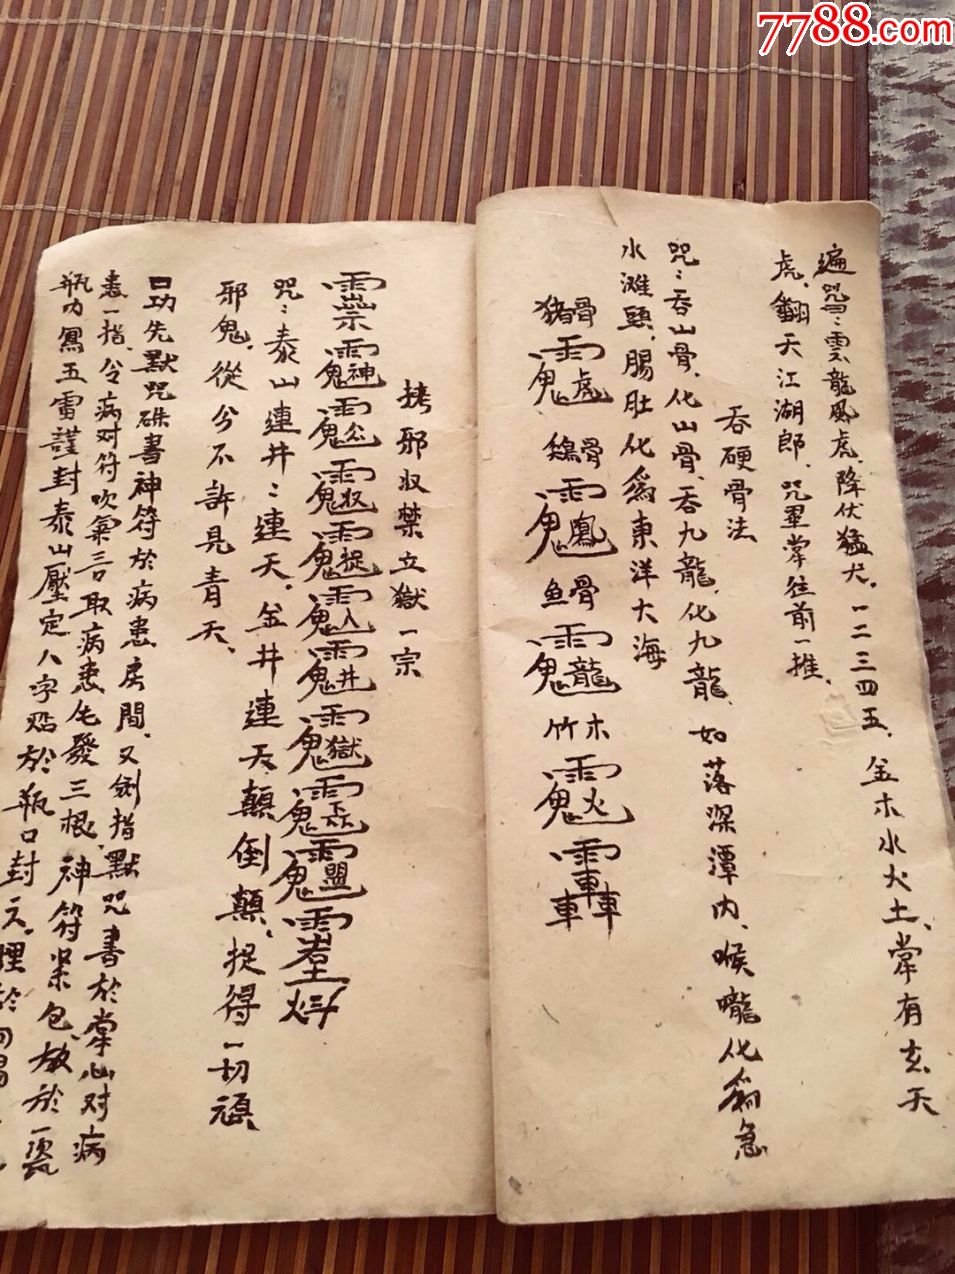 7788.com
遍咒〻雲龍鳳虎、降伏猛犬、一二三四五、金木水火土、掌有玄天
虎、翻天江湖郎、咒畢掌往前一推、
吞硬骨法
咒〻吞山骨、化山骨、吞九龍、化九龍、如落深潭內、喉嚨化為急
水灘頭、腸肚化為東洋大海
猪骨
鷄骨
鱼骨
竹木
拷邪収禁立獄一宗
咒〻泰山連井〻連天、金井連天、顛倒顛、捉得一切頑
邪鬼、從兮不許見青天、
口功先默咒硃書神符於病患房間、又剑指默咒書於掌心对病
患一指、令病对符吹氣三口取病患毛發三根、神符紧包、放於一瓷
瓶内鳳五雷謹封泰山壓定八字贴於瓶口封之、埋於